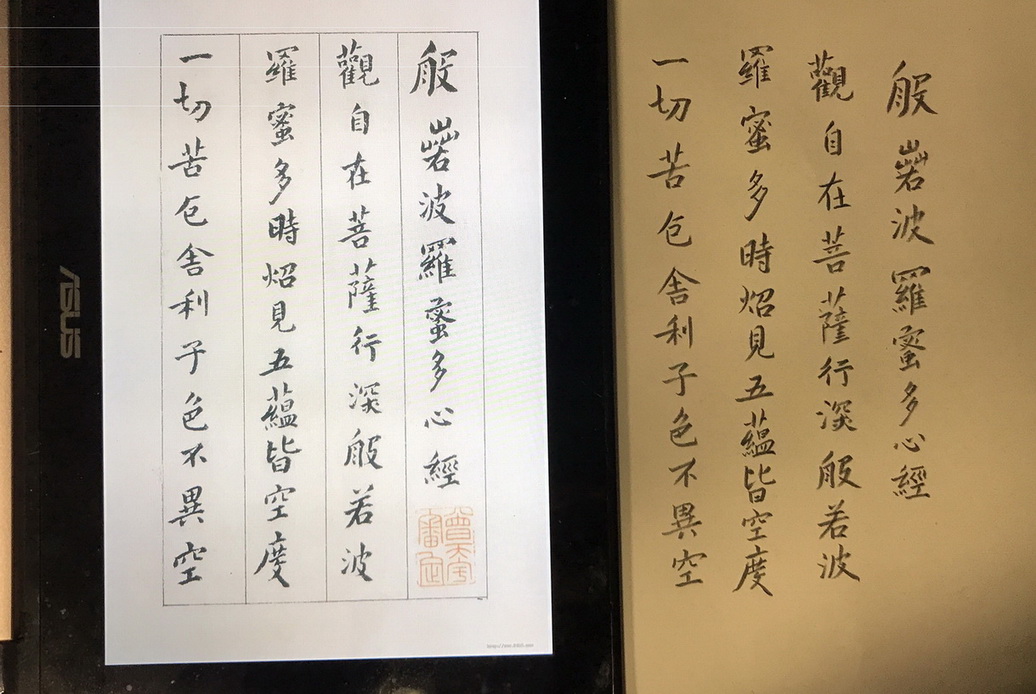 般若波羅蜜多心經
觀自在菩薩行深般若波
羅蜜多時炤見五蘊皆空度
一切苦厄舍利子色不異空
ASUS
般若波羅蜜多心經
觀自在菩薩行深般若波
羅蜜多時炤見五蘊皆空度
一切苦厄舍利子色不異空